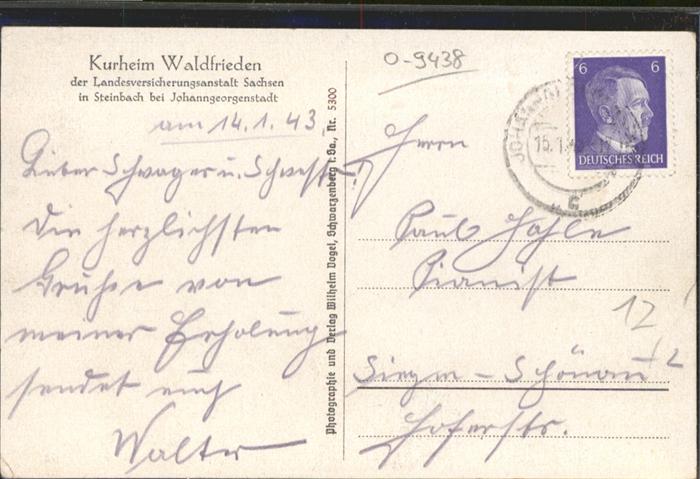 Kurheim Waldfrieden
der Landesversicherungsanstalt Sachsen
in Steinbach bei Johanngeorgenstadt
am 14.1.43.
Lieber Schwager u. Schwester!
Die herzlichsten
Grüße von
meiner Erholung
sendet euch
Walter
Photographie und Verlag Wilhelm Vogel, Schwarzenberg i. Sa., Nr. 5300
O-9438
6 6
DEUTSCHES REICH
JOHANN
15.1.
Herrn
Paul Hahle
Pianist
12
Siegm-Schönau 2
Hoferstr.